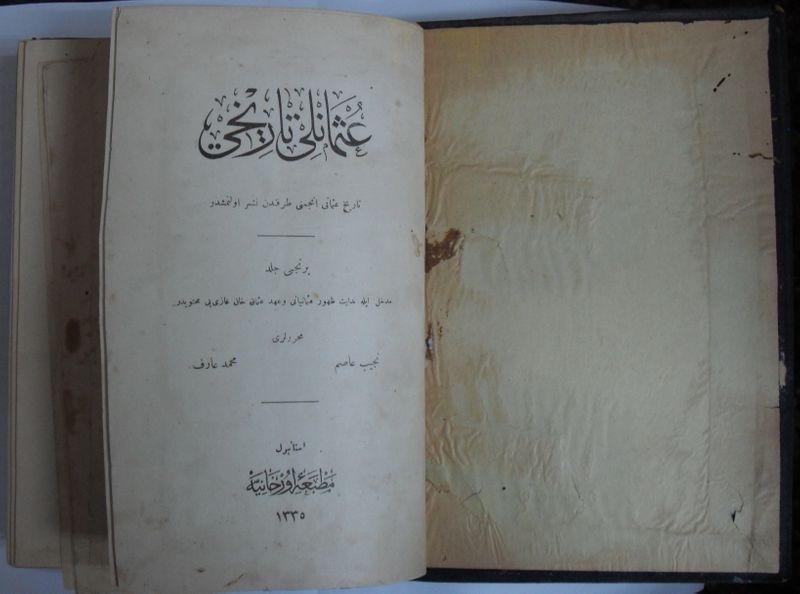 عثمانلى تاريخى
تاريخ عثمانى انجمنى طرفندن نشر اولنمشدر
برنجى جلد
مدخل ايله بدايت ظهور عثمانيانى و عهد عثمان خان غازى‌يى محتويدر
محررلرى
نجيب عاصم محمد عارف
استانبول
مطبعهٔ اورخانيه
١٣٣٥